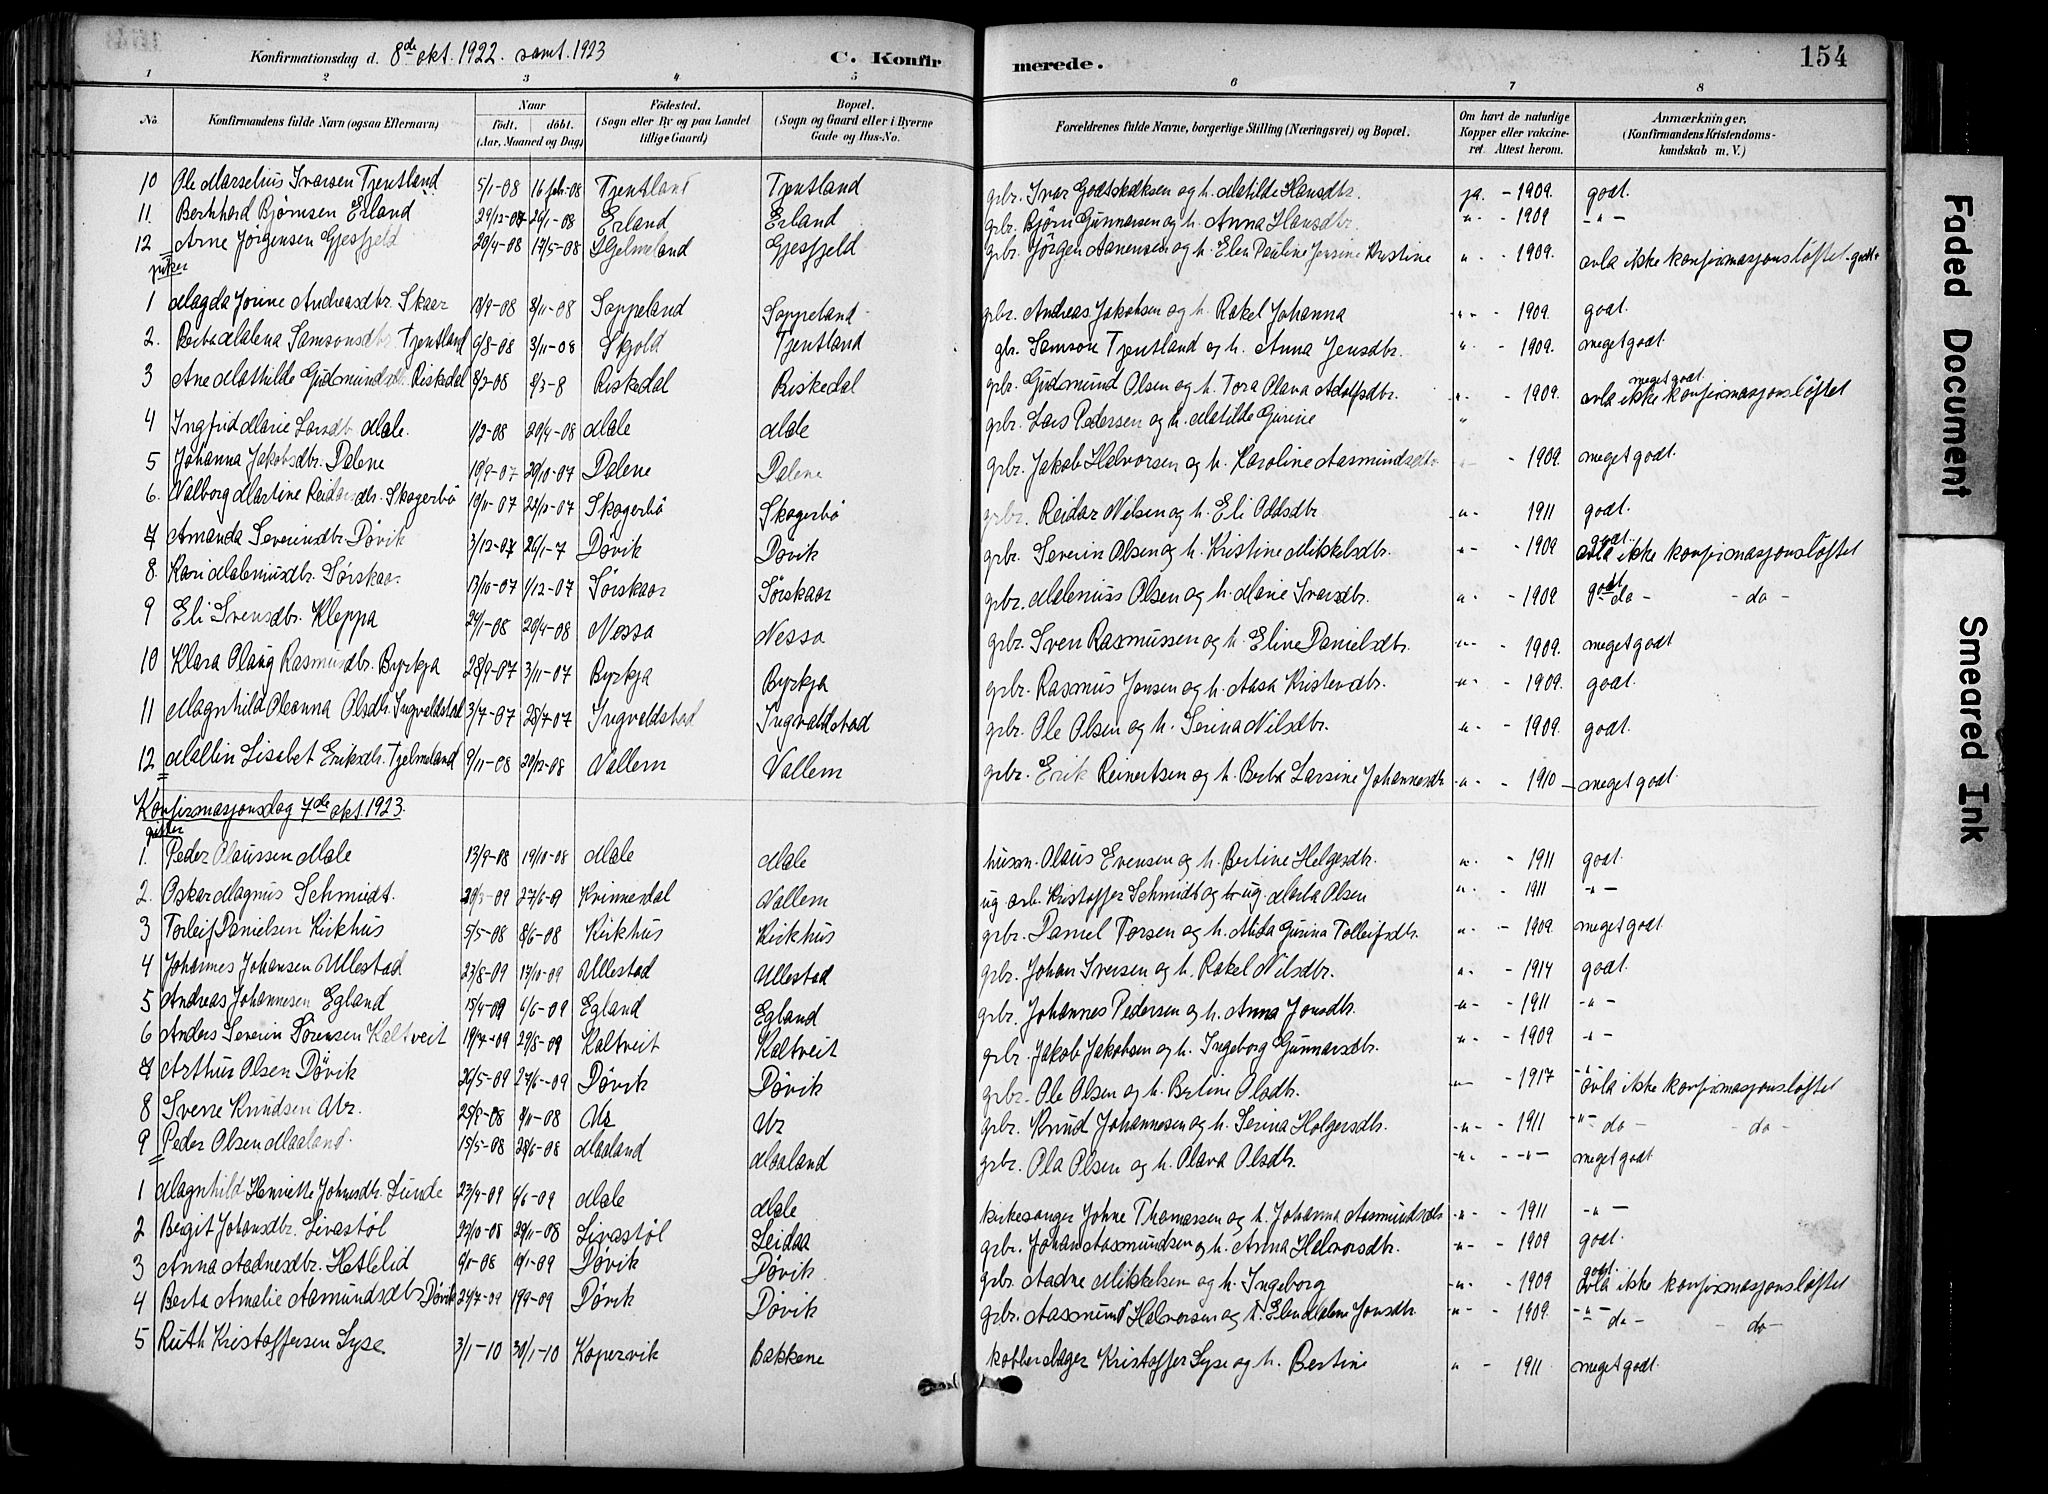 Konfirmationsdag d. 8de okt. 1922. samt. 1923 C. Konfirmerede. 154
1 2 3 4 5 6 7 8
No Konfirmandens fulde Navn (ogsaa Efternavn) Naar födt. döbt. (Aar, Maaned og Dag) Födested. (Sogn eller By og paa Landet tillige Gaard) Bopæl. (Sogn og Gaard eller i Byerne Gade og Hus-No. Forældrenes fulde Navne, borgerlige Stilling (Næringsvei) og Bopæl. Om havt de naturlige Kopper eller vakcineret. Attest herom. Anmærkninger. (Konfirmandens Kristendomskundskab m. V.)
10 Ole Marselius Ivarsen Tjentland 5/1-08 16 feb-08 Tjentland Tjentland gbr. Ivar Godtskalksen og h. Matilde Hansdbr. ja. - 1909. godt.
11. Bernhard Bjørnsen Erland 29/12-07 26/1-08 Erland Erland gbr. Bjørn Gunnarsen og h. Anna Hansdbr. " - 1909 -"-
12 Arne Jørgensen Gjesfjeld 20/4-08 17/5-08 Hjelmeland Gjesfjeld gbr. Jørgen Aanensen og h. Elen Pauline Jensine Kristine " - 1909. avla ikke konfirmasjonsløftet - godt
piker
1 Magda Jorine Andreasdbr. Skaar 13/9-08 8/11-08 Soppeland Soppeland gbr. Andreas Jakobsen og h. Rakel Johanna " - 1909. godt.
2. Berta Malena Samsonsdbr. Tjentland 6/8-08 3/11-08 Skjold Tjentland gbr. Samson Tjentland og h. Anna Jensdbr. " - 1909. meget godt.
3 Ane Mathilde Gudmundsdbr. Riskedal 8/2-08 8/3-8 Riskedal Riskedal gbr. Gudmund Olsen og h. Tora Olava Adolfsdbr. " - 1909. meget godt. avla ikke konfirmasjonsløftet
4 Ingfrid Marie Larsdb. Mæle. 1/2-08 20/4-08 Mæle Mæle gbr. Lars Pedersen og h. Matilde Gurine "
5 Johanna Jakobsdbr. Dalene 18/9-07 20/10-07 Dalene Dalene gbr. Jakob Halvorsen og h. Karoline Aasmundsdbr. - 1909. meget godt.
6. Valborg Martine Reidarsdbr. Skogerbö 10/11-07 22/12-07 Skogerbö Skogerbö gbr. Reidar Nilsen og h. Eli Oddsdbr -"- 1911 godt.
7 Amanda Severinsdbr. Døvik 3/12-07 26/1-7 Døvik Døvik gbr. Severin Olsen og h. Kristine Mikkelsdbr. " - 1909 godt. avla ikke konfirmasjonsløftet
8. Kari Maleniusdbr. Sørskaar 13/10-07 1/12-07 Sørskaar Sørskaar gbr. Malenius Olsen og h. Marie Ivarsdbr. " - 1909 godt - do - - do -
9 Eli Svensdbr. Kleppa 24/1-08 20/4-08 Nessa Nessa gbr. Sven Rasmussen og h. Eline Danielsdbr. -"- - 1909. meget godt
10 Klara Olaug Rasmusdbr. Byrkja 28/9-07 3/11-07 Byrkja Byrkja gbr. Rasmus Jensen og h. Aasa Kristendbr. -"- - 1909. godt.
11 Magnhild Oleanna Olsdbr. Ingvaldstad 3/7-07 28/7-07 Ingvaldstad Ingvaldstad gbr. Ole Olsen og h. Serina Nilsdbr. -"- - 1909. godt.
12 Mallin Lisabet Eriksdbr. Tjelmeland 9/11-08 20/12-08 Vallem Vallem gbr. Erik Reinertsen og h. Berta Larsine Johannesdbr -"- - 1910 - meget godt.
Konfirmasjonsdag 7de okt. 1923.
gutter
1. Peder Olaussen Mæle 13/9-08 19/10-08 Mæle Mæle husm. Olaus Evensen og h. Bertine Helgesdbr. " - 1911 godt.
2. Oskar Magnus Schmidt. 20/3-09 27/6-09 Krimesdal Vallem ug. arb. Kristoffer Schmidt og ug. Marta Olsen " - 1911 -"-
3 Torleif Danielsen Kirkhus 5/5-08 8/6-08 Kirkhus Kirkhus gbr. Daniel Torsen og h. Mida Gurina Tolleifsdbr. " - 1909. meget godt
4 Johannes Johansen Ullestad 23/8-09 17/10-09 Ullestad Ullestad gbr. Johan Iversen og h. Rakel Nilsdbr. " - 1914 godt.
5 Andreas Johannesen Egland 15/4-09 6/6-09 Egland Egland gbr. Johannes Pedersen og h. Anna Jonsdbr. -"- - 1911 -"-
6 Anders Severin Sørensen Kaltveit 19/7-09 29/8-09 Kaltveit Kaltveit gbr. Jakob Jakobsen og h. Ingeborg Gunnarsdbr. -"- - 1909 -"-
7 Arthur Olsen Døvik 26/5-09 27/6-09 Døvik Døvik gbr. Ole Olsen og h. Bertine Olsdbr. - 1917 -"- avla ikke konfirmasjonsløftet
8 Sverre Knudsen Ur. 25/8-08 8/11-08 Ur Ur gbr. Knud Johannesen og h. Serina Holgersdbr. -"- - 1911 -"- do - - do -
9 Peder Olsen Maaland. 15/5-08 28/6-08 Maaland Maaland gbr. Ola Olsen og h. Olava Olsdbr. -"- -"- meget godt
1 Magnhild Henriette Johnsdbr. Lunde 23/4-09 6/6-09 Mæle Mæle kirkesanger Johne Thomassen og h. Johanna Aasmundsdbr -"- - 1911 -"-
2 Bergit Johansdbr. Livastøl 22/10-08 29/11-08 Livastøl Leidaa gbr. Johan Aasmundsen og h. Anna Halvorsdbr. -"- - 1909 godt.
3 Anna Aadnesdbr. Hetlelid 9/11-08 10/1-09 Døvik Døvik gbr. Aadne Mikkelsen og h. Ingeborg -"- - 1909 godt. avla ikke konfirmasjonsløftet
4 Berta Amalie Aasmundsdbr Døvik 24/7-09 19/9-09 Døvik Døvik gbr. Aasmund Halvorsen og h. Elen Malene Jonsdbr. -"- - 1909. -"- do - - do -
5 Ruth Kristoffersen Lyse 3/1-10 30/1-10 Kopervik Bakkene kobberslager Kristoffer Lyse og h. Bertine " - 1911. meget godt.
Faded Document
Smeared Ink